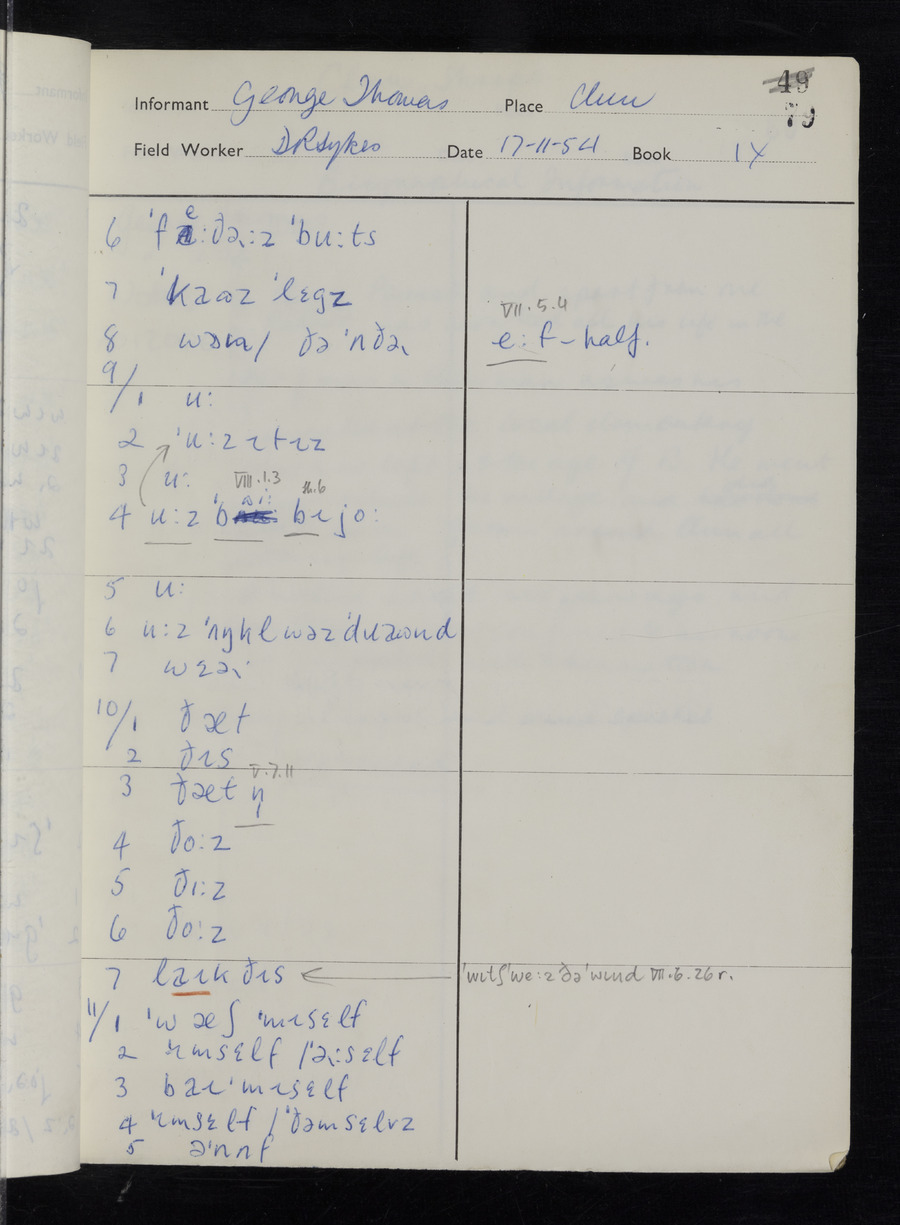 49
79
Informant George Thomas Place Clun
Field Worker DRSykes Date 17-11-54 Book IX
6 ˈfeːðəːz ˈbuːts
7 ˈkaʊz ˈlɛgz
8
VII.5.4
eːf – half.
9/1 uː
2 ˈuːzɪtɪz
3 uː
VIII.1.3
4 uːz ˈbəiː bɪjoː
5 uː
6
7
10/1 ðæt
2 ðɪs
V.7.11
3 ðæt n̩
4 ðoːz
5 ðiːz
6 ðoːz
7 laɪk ðɪs
ˈwɪtʃ ˈweːz ðə ˈwɪnd VII.6.26r.
11/1 ˈwæʃ ˈmɪsɛlf
2 ˈɪmsɛlf / ˈəːsɛlf
3 baɪ ˈmɪsɛlf
4 ˈɪmsɛlf / ˈðəmsɛlvz
5